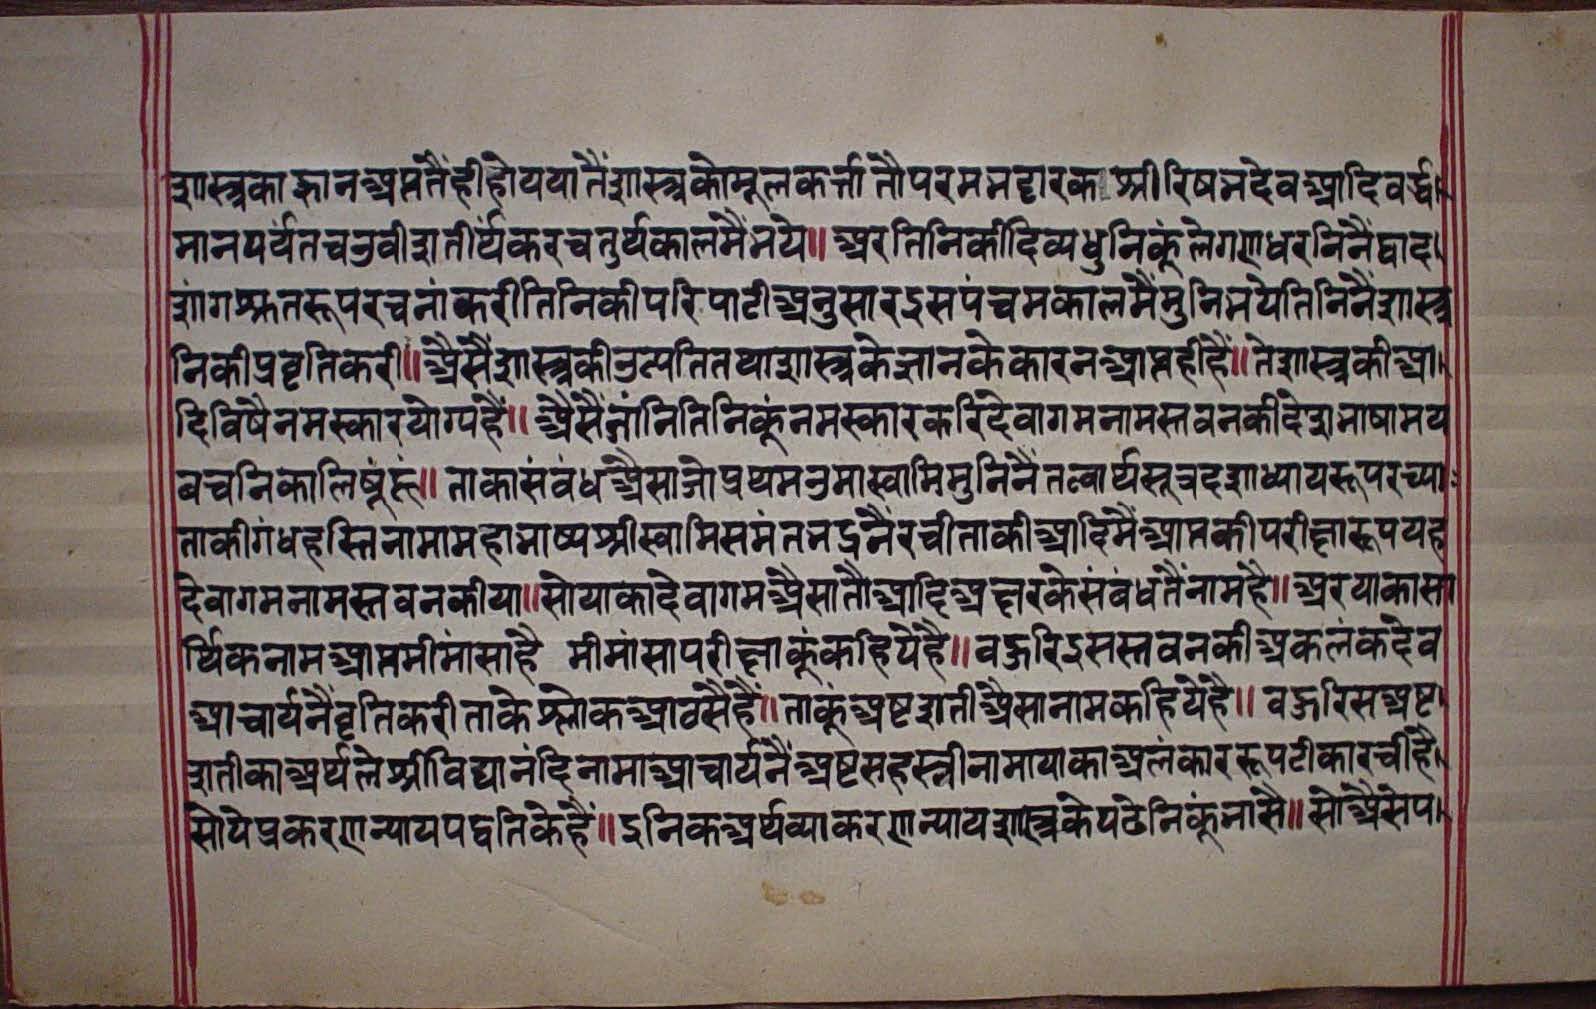 शास्त्रका ज्ञान आप्ततैं ही होय यातैं शास्त्रको मूलकर्त्ता तौ परमभट्टारक श्रीरिषभदेव आदि वर्द्ध
मानपर्यंत चउवीश तीर्थंकर चतुर्थकालमैं भये॥ अर तिनिकी दिव्यधुनिकूं ले गणधरनिनैं द्वाद
शांगश्रुतरूप रचनां करी तिनिकी परिपाटी अनुसार इस पंचमकालमैं मुनि भये तिनिनैं शास्त्र
निकी प्रवृति करी॥ अैसैं शास्त्रकी उत्पति तथा शास्त्रके ज्ञानके कारन आप्त ही हैं॥ ते शास्त्रकी आ
दिविषै नमस्कार योग्य हैं॥ अैसैं जांनि तिनिकूं नमस्कार करि देवागमनाम स्तवनकी देशभाषामय
बचनिका लिषूं हूं॥ ताका संबंध अैसा जो प्रथम उमास्वामि मुनिनैं तत्वार्थसूत्र दशाध्यायरूप रच्या
ताकी गंधहस्तिनामा महाभाष्य श्रीस्वामिसमंतभद्रनैं रची ताकी आदिमैं आप्तकी परीक्षारूप यह
देवागमनाम स्तवन कीया॥ सो याका देवागम अैसा तौ आदि अक्षरके संबंधतैं नाम है॥ अर याका सा
र्थिक नाम आप्तमीमांसा है मीमांसा परीक्षाकूं कहिये है॥ वहुरि इस स्तवनकी अकलंकदेव
आचार्यनैं वृति करी ताके श्लोक आठसै हैं॥ ताकूं अष्टशती अैसा नाम कहिये है॥ वहुरि स अष्ट
शतीका अर्थ ले श्रीविद्यानंदिनामा आचार्यनैं अष्टसहस्त्री नामा याका अलंकाररूप टीका रची है
सो ये प्रकरण न्यायपद्धतिके हैं॥ इनिक अर्थ व्याकरण न्यायशास्त्रके पढेनिकूं भासै॥ सो अैसे प